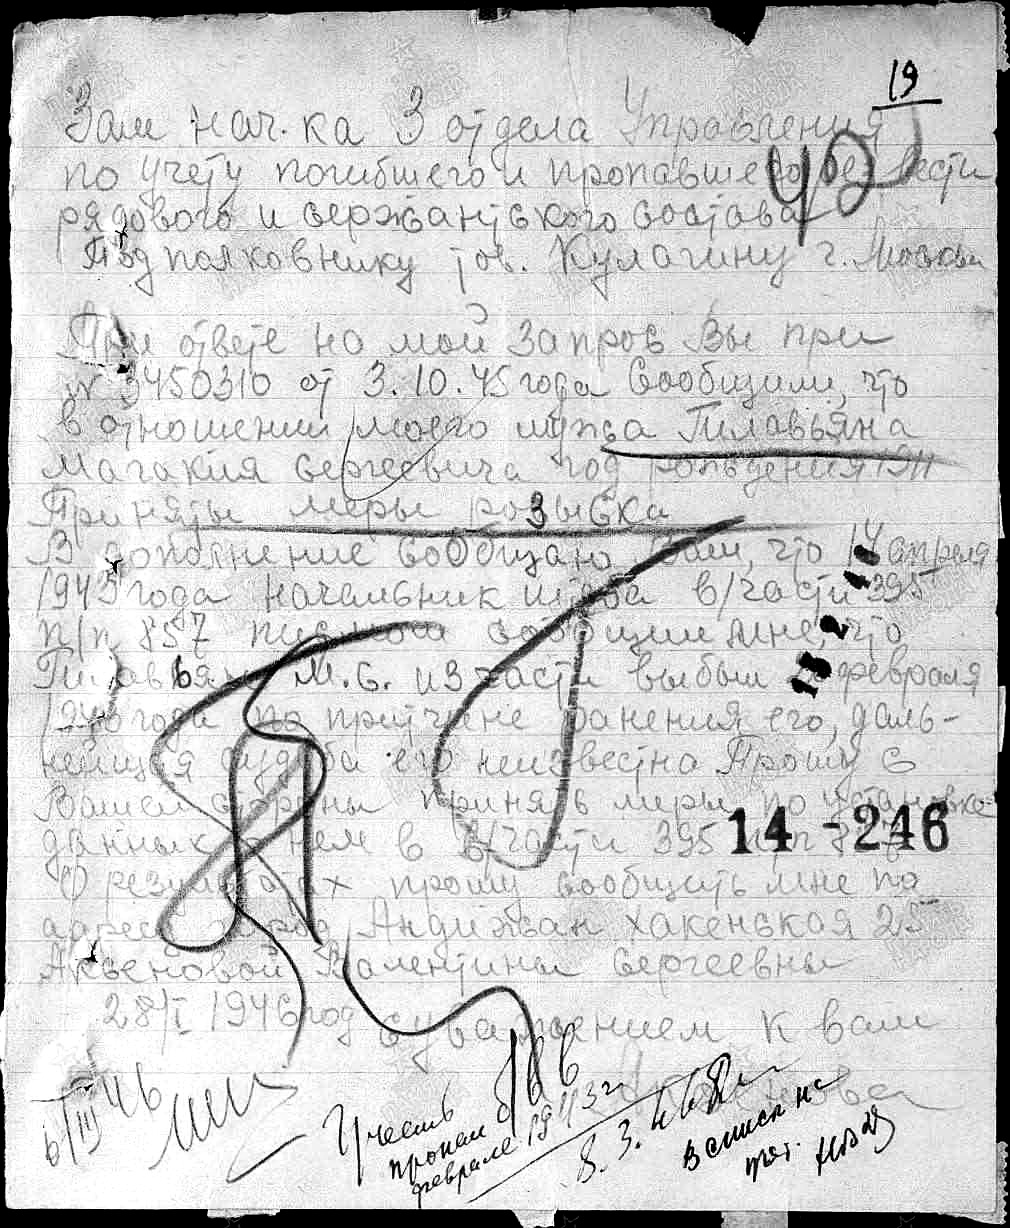 19
Зам нач.ка 3 отдела Управления
по учету погибшего и пропавшего без вести
рядового и сержантского состава
Подполковнику тов. Кулагину г. Москва
При ответе на мой запрос Вы при
№ 3450310 от 3.10.45 года сообщили, что
в отношении моего мужа Гилавьяна
Магакия Сергеевича год рождения 1911
Приняты меры розыска
В дополнение сообщаю Вам, что 14 апреля
1943 года начальник штаба в/части 395
п/п 857 письмом сообщил мне, что
Гилавьян М.С. из части выбыл февраля
1943 года по притчине ранения его, даль-
нейшая судьба его неизвестна Прошу с
Вашей стороны принять меры по установке
данных о нем в в/части 395 п/п
О результатах прошу сообщить мне по
адресу город Андижан хакенская 25
Аксеновой Валентины Сергеевны
28/I 1946 год с уважением к вам
14-246
6/III 46
Учесть
пропал б/в в
феврале 1943 г
8.3.46